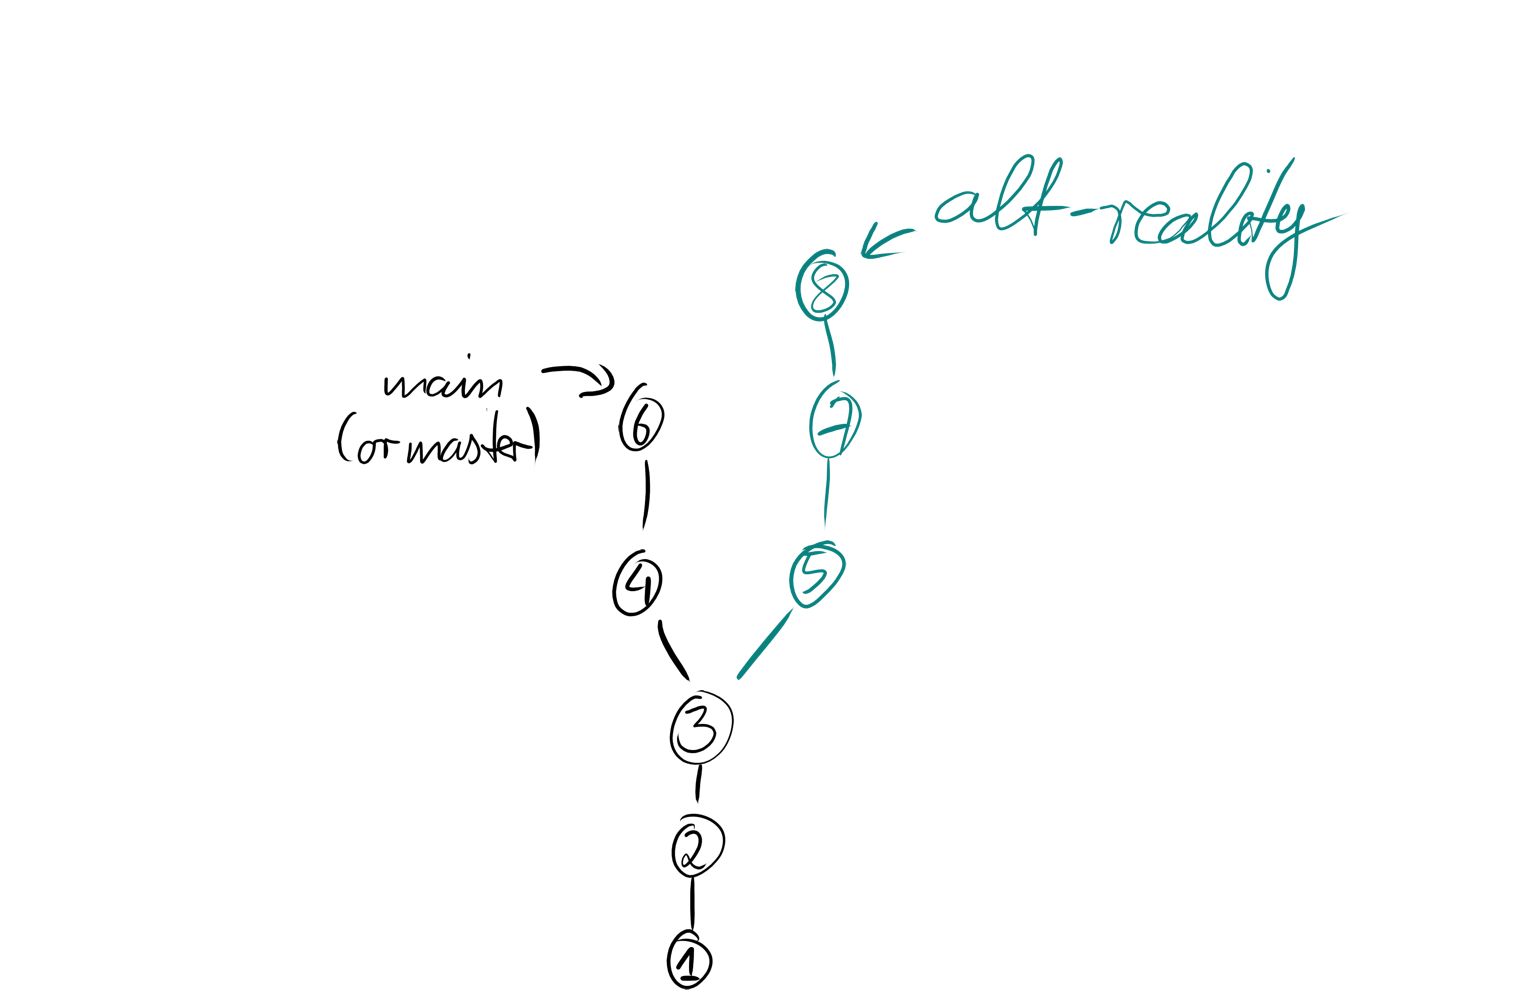 alt-reality
8
main
(or master)
6
7
4
5
3
2
1